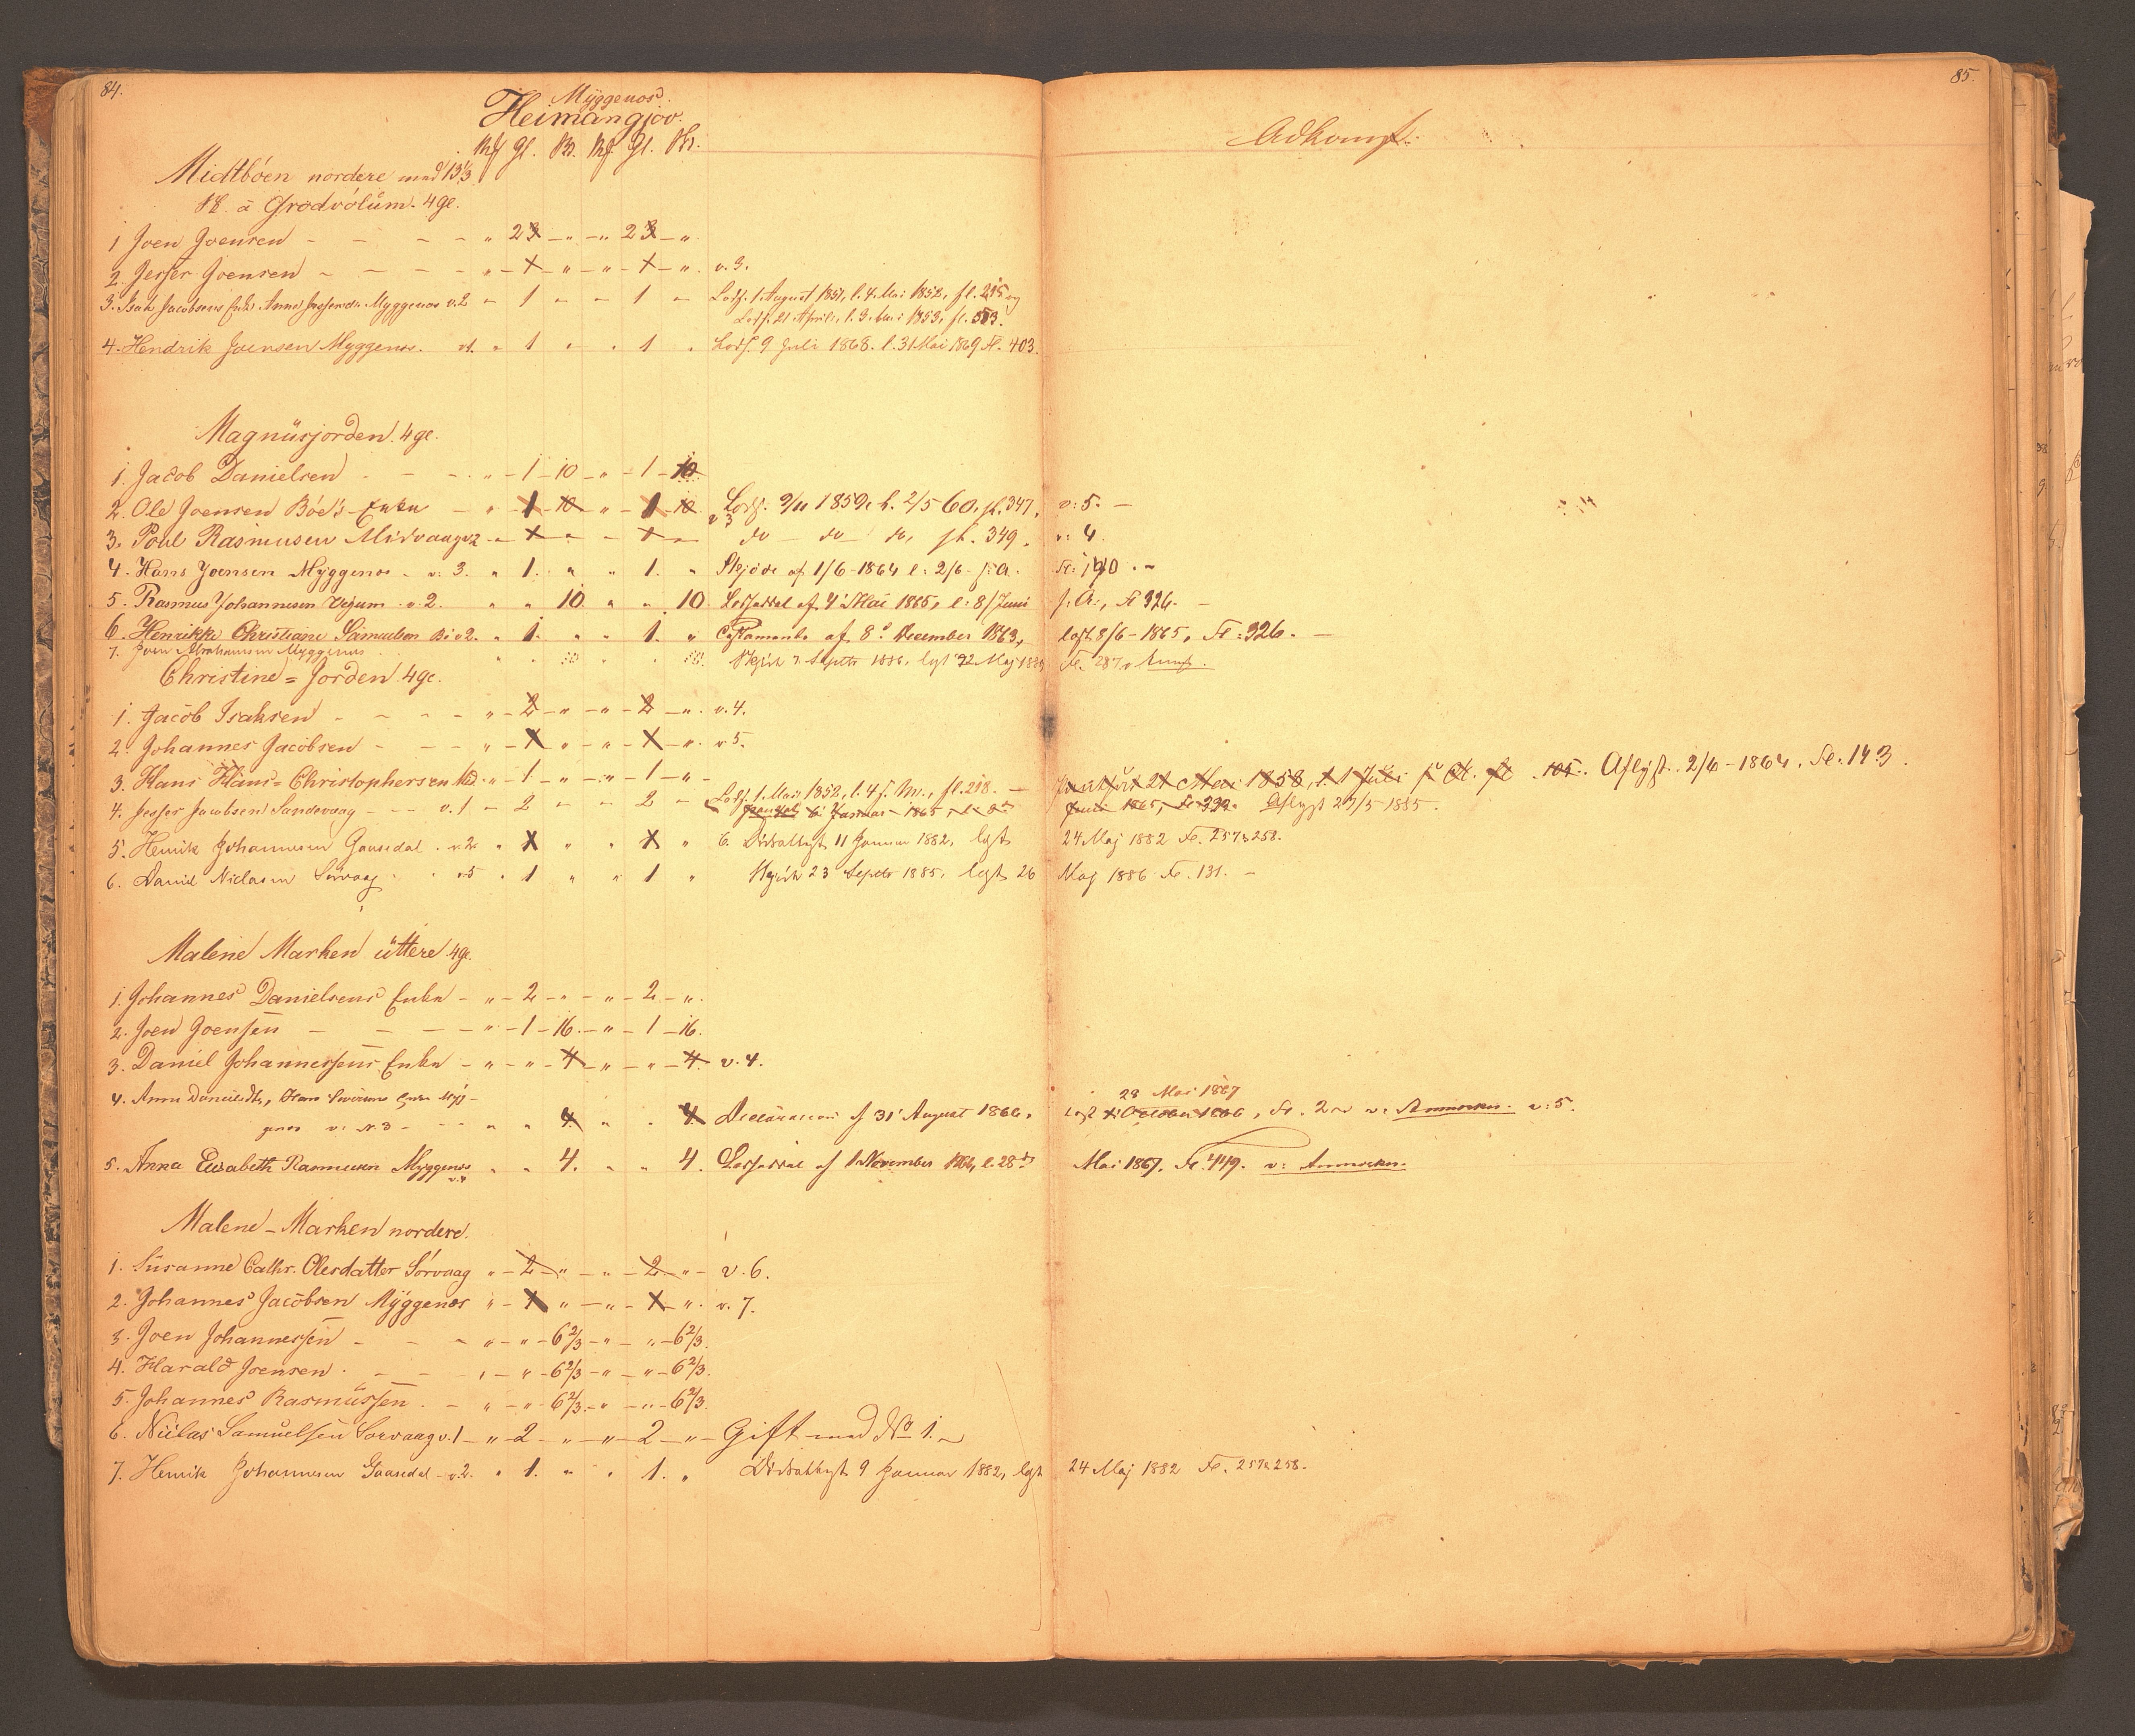 84.
85.
Myggenæs
Heimangjov.
Adkomst.
Mk Gl. Sk. Mk Gl. Sk.
Midtböen nordere med 13⅓
Sk. á Grodvólum. 4 gl.
1 Joen Joensen - - - - " 2 3 - " - " 2 3 - "
2. Jesper Joensen - - - " - 1 - " - " - 1 - " v. 3.
3. Isak Jacobsens Enke Anne Myggenæs v. 2 - 1 - - 1 - Lodf. 1 August 1851, l. 4 Mai 1852, fl. 215 og
Lodf. 21 April, l. 3. Juni 1853, fl. 383.
4. Hendrik Joensen Myggenæs. v1. " 1 " " 1 " Lodf. 9 Juli 1868. l. 31 Mai 1869 Fl. 403.
Magnüsjorden. 4 gl.
1. Jacob Danielsen - - - " - 1 - 10 - " - 1 - 10
2. Ole Joensen Böe's Enke - " - 1 - 10 " - 1 - 10 v 3 Lodf. 9/11 1859, l. 2/5 60, fl. 347, v: 5. -
3. Poul Rasmusen Midvaag v2 - 1 - - 1 - do - do - do, fl. 349. v: 4.
4. Hans Joensen Myggenæs - v: 3. " 1. " " 1. " Skjöde af 1/6 1864 l: 2/6 s. A. Fl: 140. -
5. Rasmus Johannesen Velgum v. 2. " " 10 " " 10. af 4 Mai 1865, l: 8/Juni s: A:, Fl 326. -
6. Henrikke Christiane Samuelsen Bö v 2. " 1. " " 1. " af 8de December 1863, læst 8/6 - 1865, Fl: 326. -
7. Joen Abrahamsen Myggenæs " " 10 " " 10. Skjöde 7 Septbr 1886, læst 22 Maj 1889 Fl. 287, v Anmk.
Christine = Jorden. 4 gl.
1. Jacob Isaksen - - - - " - 2 - " - " - 2 - " v. 4.
2. Johannes Jacobsen - - - " - 1 " - " - 1 - " v 5.
3. Hans Hans = Christophersen Md. " - 1 - " - " - 1 - " - 24 Mai 1858, l. 1 Juli s. A. fl. 105. Aflyst 2/6 - 1864. Fl. 143.
4. Jesper Jacobsen Sandevaag - - v. 1 - 2 - - 2 - Lodf. 1. Mai 1852, l. 4 s. M., fl. 218. -
6 Januar 1865, l. 8de Juni 1865, Fl. 329. Aflyst 27/5 1885.
5. Henrik Johannesen Gaasedal. v. 2. " 1 " " 1 " 6. 11 Januar 1882, læst 24 Maj 1882 Fl. 257 & 258.
6. Daniel Niclasen Sörvaag v 5 " 1 " " 1 " Skjöde 23 Septbr 1885, læst 26 Maj 1886 Fl. 131. -
Malene Marken üttere 4 gl.
1. Johannes Danielsens Enke - " - 2 - " - " - 2 - "
2. Joen Joensen - - - - " - 1 - 16. - " - 1 - 16.
3. Daniel Johannessens Enke - " - " - 4 - " - " - 4 v. 4.
4. Anne Danielsdtr, Hans Enke Myg-
genæs v: N. 3 - - - " " 4. " " 4. Declaration af 31 August 1866, læst 4 October 1866 28 Mai 1867, Fl. v: Anmærkn. v: 5.
5. Anna Elisabeth Rasmusen Myggenæs v. 4 " " 4. " " 4. af 1 November 1866, l. 28de Mai 1867. Fl. 449. v: Anmærkn.
Malene - Marken nordere.
1. Susanne Cathr. Olesdatter Sörvaag " - 2 - " - " - 2 " - v. 6.
2. Johannes Jacobsen Myggenæs " - 1 " - " - 1 - " v. 7.
3. Joen Johannessen - - - " - " - 6⅔ - " - " - 6⅔.
4. Harald Joensen. - - " - " - 6⅔ - " - " - 6⅔.
5. Johannes Rasmussen. - " - " - 6⅔ - " - " - 6⅔.
6. Niclas Samuelsen Sorvaag v. 1 - " - 2 - " - " - 2 - " - Gift med No 1.
7. Henrik Johannesen Gaasedal - v. 2. " 1. " " 1. " 9 Januar 1882, læst 24 Maj 1882 Fl. 257 & 258.